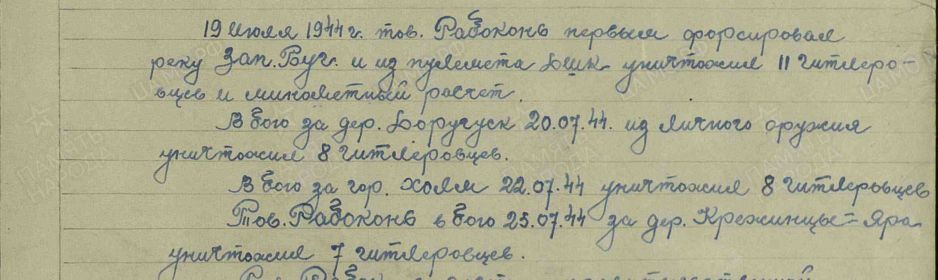 19 июля 1944г. тов. Рабоконь первым форсировал
реку Зап. Буг. и из пулемета Дшк уничтожил 11 гитлеро-
вцев и минометный расчет.
В бою за дер. Доругуск 20.07.44. из личного оружия
уничтожил 8 гитлеровцев.
В бою за гор. Холм 22.07.44 уничтожил 8 гитлеровцев
Тов. Рабоконь в бою 25.07.44 за дер. Крежинцы=Яра
уничтожил 7 гитлеровцев.